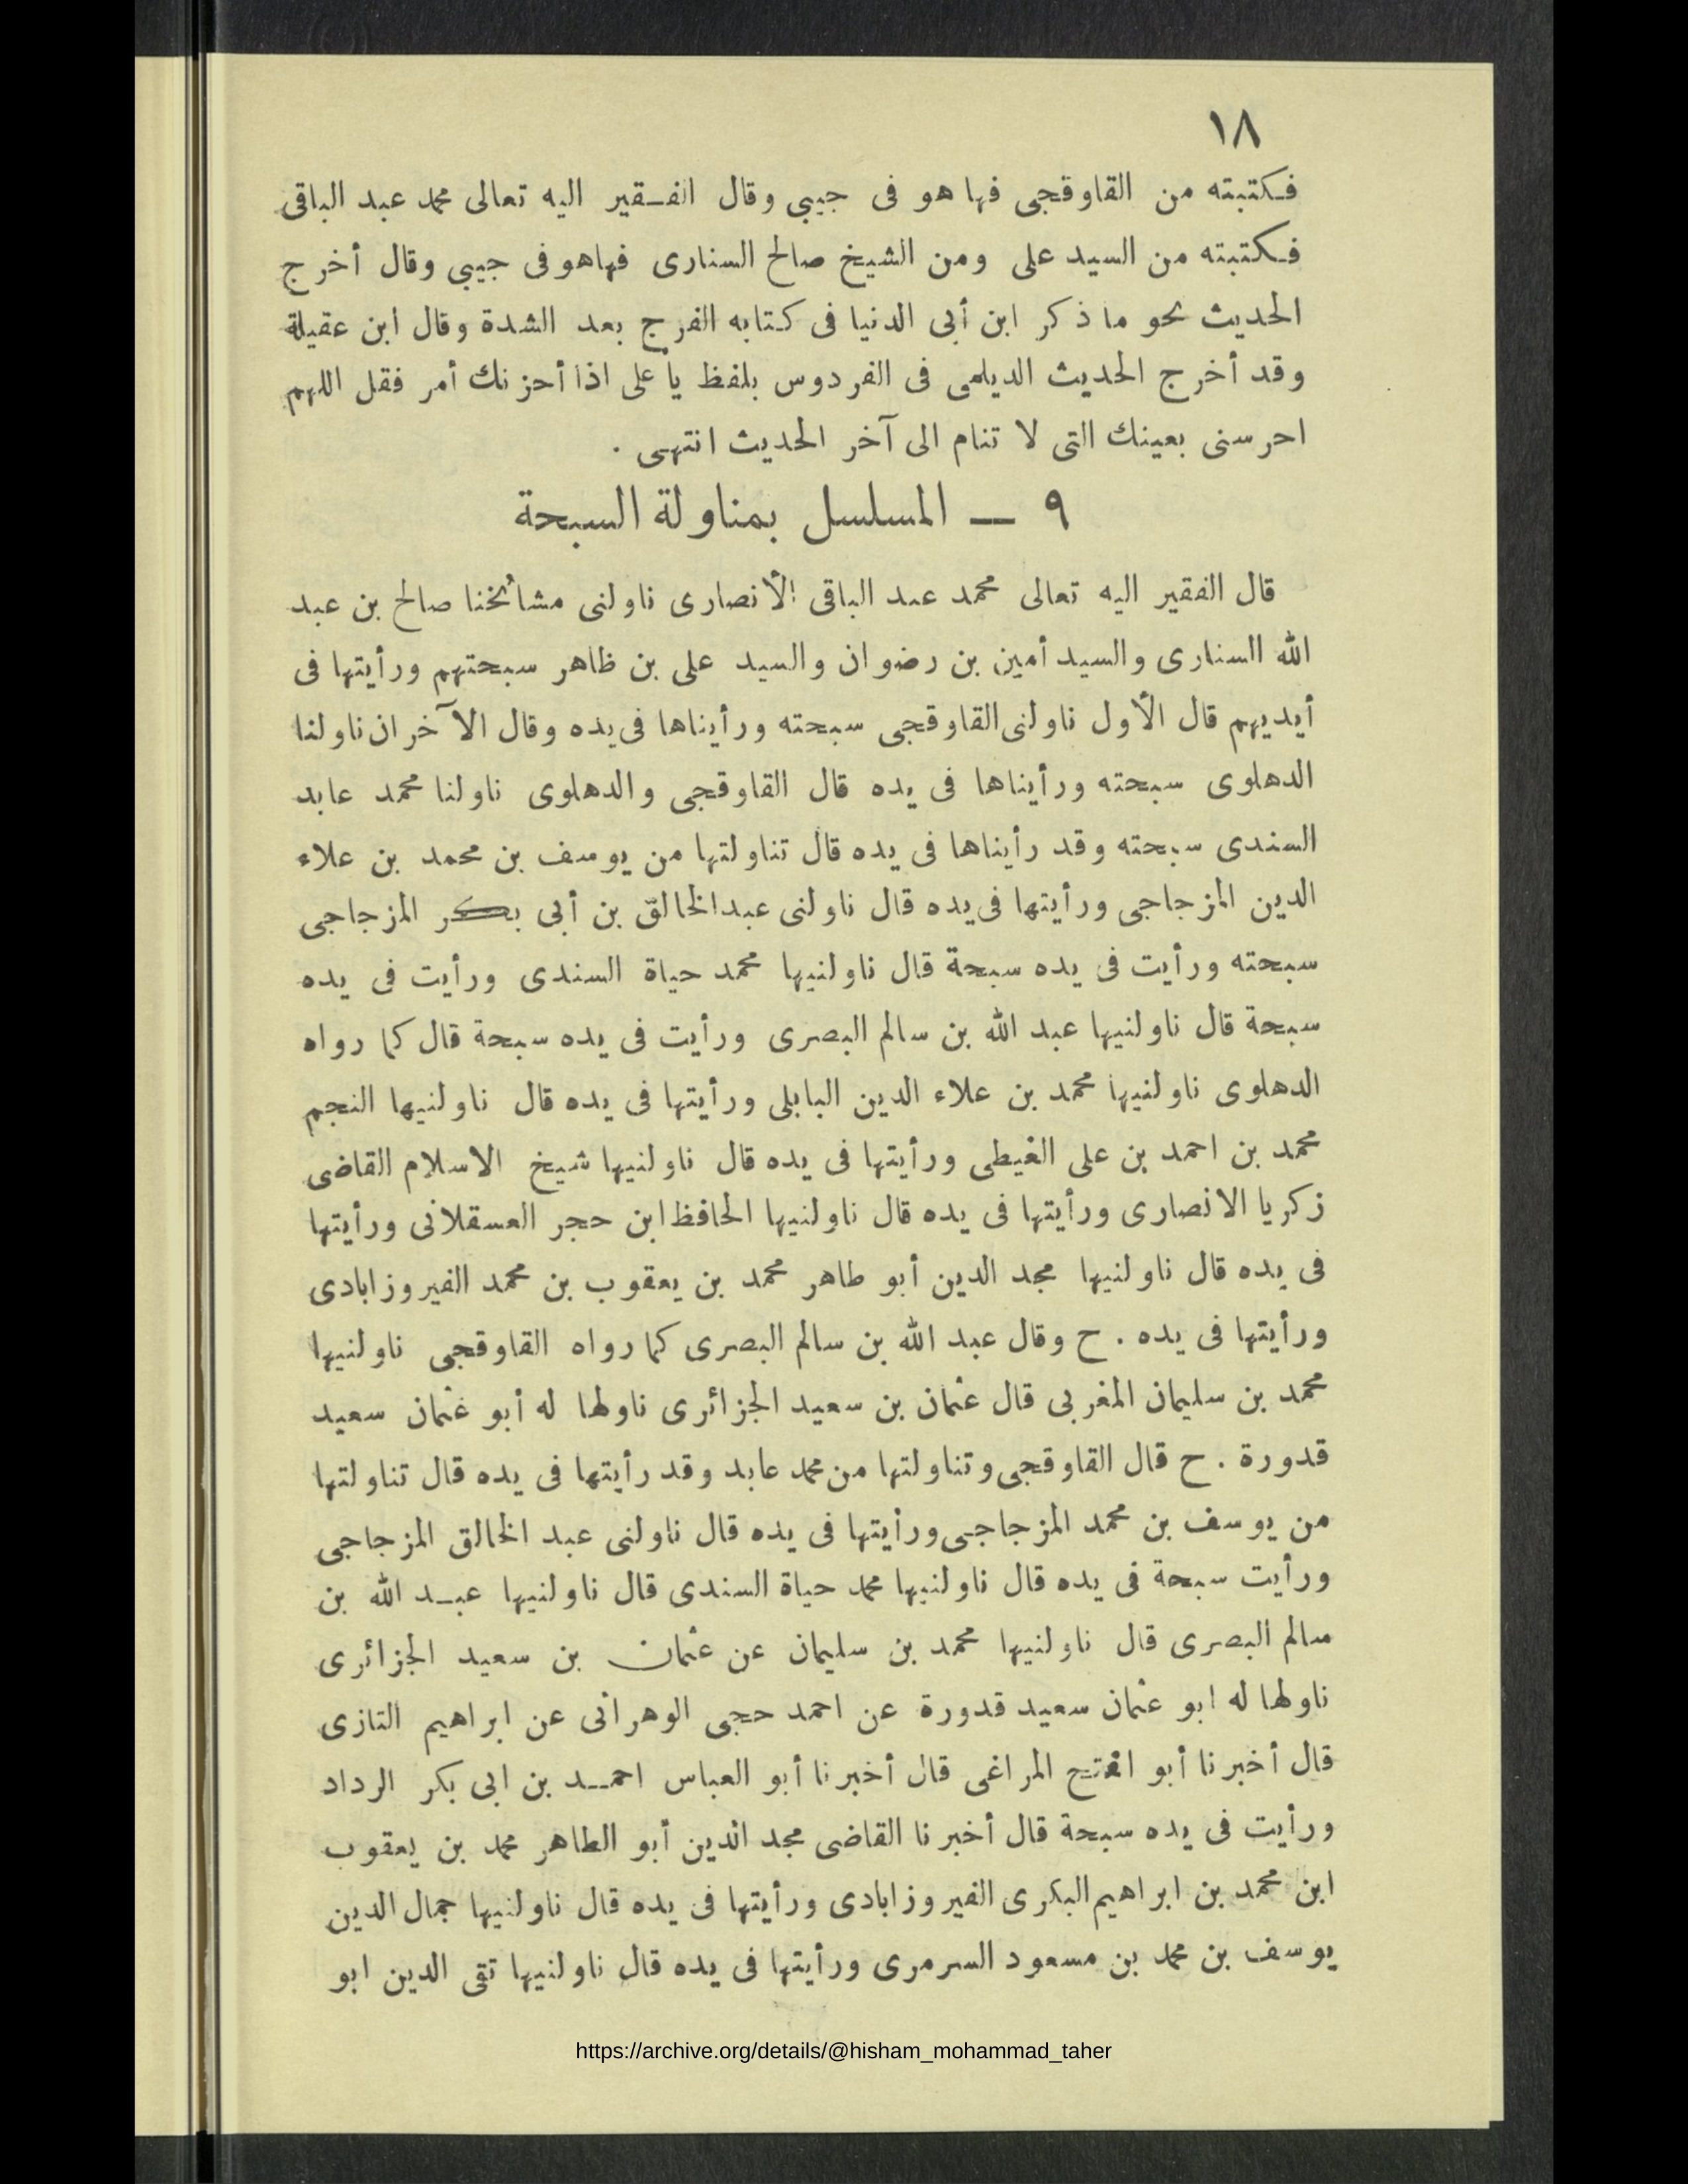 ١٨
فكتبته من القاوقجى فها هو فى جيبى وقال الفقير اليه تعالى محمد عبد الباقى
فكتبته من السيد على ومن الشيخ صالح السنارى فهاهو فى جيبى وقال أخرج
الحديث نحو ما ذكر ابن أبى الدنيا فى كتابه الفرج بعد الشدة وقال ابن عقيلة
وقد أخرج الحديث الديلمى فى الفردوس بلفظ يا على اذا أحزنك أمر فقل اللهم
احرسنى بعينك التى لا تنام الى آخر الحديث انتهى .
٩ — المسلسل بمناولة السبحة
قال الفقير اليه تعالى محمد عبد الباقى الأنصارى ناولنى مشائخنا صالح بن عبد
الله السنارى والسيد أمين بن رضوان والسيد على بن ظاهر سبحتهم ورأيتها فى
أيديهم قال الأول ناولنى القاوقجى سبحته ورأيناها فى يده وقال الآخران ناولنا
الدهلوى سبحته ورأيناها فى يده قال القاوقجى والدهلوى ناولنا محمد عابد
السندى سبحته وقد رأيناها فى يده قال تناولتها من يوسف بن محمد بن علاء
الدين المزجاجى ورأيتها فى يده قال ناولنى عبد الخالق بن أبى بكر المزجاجى
سبحته ورأيت فى يده سبحة قال ناولنيها محمد حياة السندى ورأيت فى يده
سبحة قال ناولنيها عبد الله بن سالم البصرى ورأيت فى يده سبحة قال كما رواه
الدهلوى ناولنيها محمد بن علاء الدين البابلى ورأيتها فى يده قال ناولنيها النجم
محمد بن احمد بن على الغيطى ورأيتها فى يده قال ناولنيها شيخ الاسلام القاضى
زكريا الانصارى ورأيتها فى يده قال ناولنيها الحافظ ابن حجر العسقلانى ورأيتها
فى يده قال ناولنيها مجد الدين أبو طاهر محمد بن يعقوب بن محمد الفيروزابادى
ورأيتها فى يده . ح وقال عبد الله بن سالم البصرى كما رواه القاوقجى ناولنيها
محمد بن سليمان المغربى قال عثمان بن سعيد الجزائرى ناولها له أبو عثمان سعيد
قدورة . ح قال القاوقجى وتناولتها من محمد عابد وقد رأيتها فى يده قال تناولتها
من يوسف بن محمد المزجاجى ورأيتها فى يده قال ناولنى عبد الخالق المزجاجى
ورأيت سبحة فى يده قال ناولنيها محمد حياة السندى قال ناولنيها عبد الله بن
سالم البصرى قال ناولنيها محمد بن سليمان عن عثمان بن سعيد الجزائرى
ناولها له ابو عثمان سعيد قدورة عن احمد حجى الوهرانى عن ابراهيم التازى
قال أخبرنا أبو الفتح المراغى قال أخبرنا أبو العباس احمد بن ابى بكر الرداد
ورأيت فى يده سبحة قال أخبرنا القاضى مجد الدين أبو الطاهر محمد بن يعقوب
ابن محمد بن ابراهيم البكرى الفيروزابادى ورأيتها فى يده قال ناولنيها جمال الدين
يوسف بن محمد بن مسعود السرمرى ورأيتها فى يده قال ناولنيها تقى الدين ابو
https://archive.org/details/@hisham_mohammad_taher